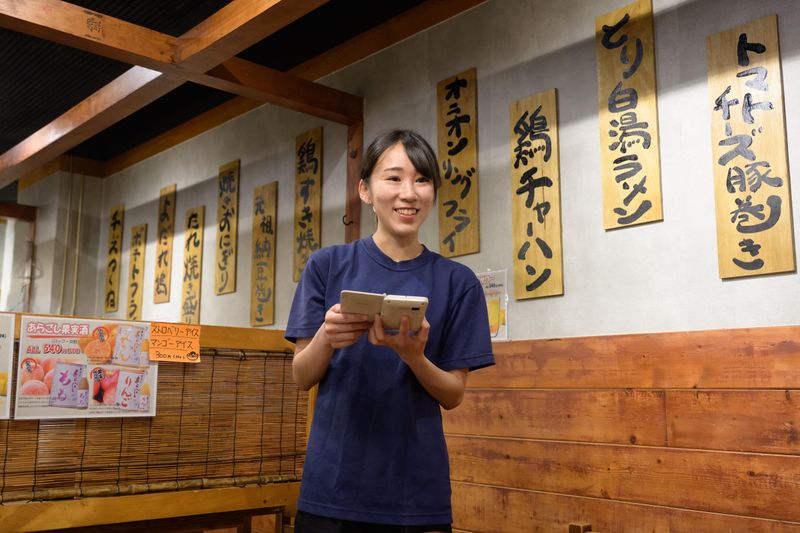 トマトチーズ豚巻き
とり白湯ラーメン
鶏チャーハン
オニオンリングフライ
鶏すき焼
元祖納豆巻き
焼きおにぎり
たれ焼き盛り
よだれ鶏
ポテトフライ
チーズつくね
あらごし果実酒
ALL 340
もも
りんご
ストロベリーアイス
マンゴーアイス
300円